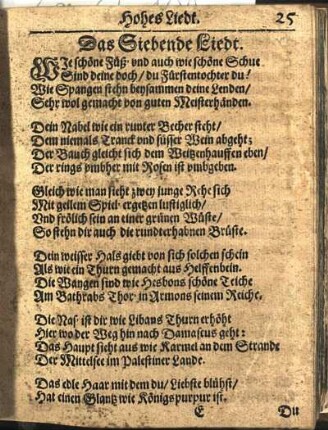 Hohes Liedt. 25
Das Siebende Liedt.
WJe schöne Füß vnd auch wie schöne Schue
Sind deine doch/ du Fürstentochter du!
Wie Spangen stehn beysammen deine Lenden/
Sehr wol gemacht von guten Meisterhänden.
Dein Nabel wie ein runter Becher steht/
Dem niemals Tranck vnd süsser Wein abgeht;
Der Bauch gleicht sich dem Weitzenhauffen eben/
Der rings vmbher mit Rosen ist vmbgeben.
Gleich wie man sieht zwey junge Rehe sich
Mit geilem Spiel ergetzen lustiglich/
Vnd frölich sein an einer grünen Wüste/
So stehn dir auch die rundterhabnen Brüste.
Dein weisser Hals giebt von sich solchen schein
Als wie ein Thurn gemacht aus Helffenbein.
Die Wangen sind wie Hesbons schöne Teiche
Am Bathrabs Thor in Armons seinem Reiche.
Die Nas' ist dir wie Libans Thurn erhöht
Hier wo der Weg hin nach Damascus geht:
Das Haupt sieht aus wie Karmel an dem Strande
Der Mittelsee im Palestiner Lande.
Das edle Haar mit dem du/ Liebste blühst/
Hat einen Glantz wie Königspurpur ist.
E Du